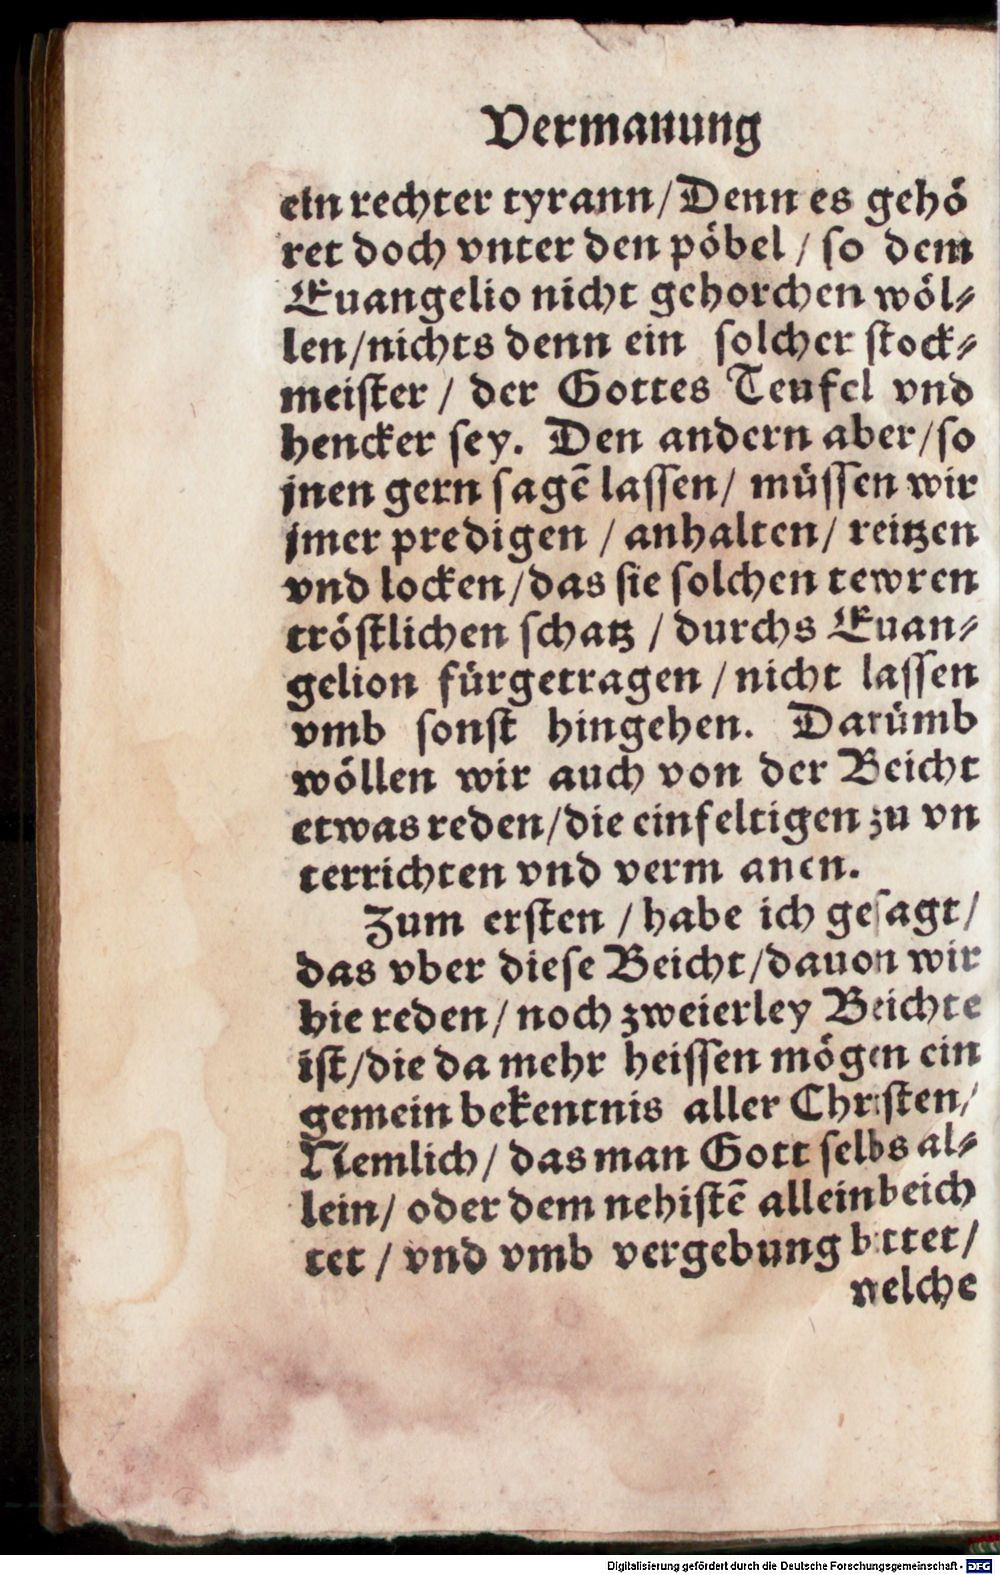 Vermanung
ein rechter tyrann/Denn es gehö
ret doch vnter den pöbel / so dem
Euangelio nicht gehorchen wöl⸗
len/nichts denn ein solcher stock⸗
meister / der Gottes Teufel vnd
hencker sey. Den andern aber/so
jnen gern sagē lassen/ müssen wir
jmer predigen / anhalten/ reitzen
vnd locken/das sie solchen tewren
tröstlichen schatz / durchs Euan⸗
gelion fürgetragen / nicht lassen
vmb sonst hingehen. Darümb
wöllen wir auch von der Beicht
etwas reden/die einfeltigen zu vn
terrichten vnd verm anen.
Zum ersten / habe ich gesagt/
das vber diese Beicht/dauon wir
hie reden/ noch zweierley Beichte
ist/die da mehr heissen mögen ein
gemein bekentnis aller Christen/
Nemlich/ das man Gott selbs al⸗
lein/ oder dem nehistē allein beich
tet / vnd vmb vergebung bittet/
welche
Digitalisierung gefördert durch die Deutsche Forschungsgemeinschaft - DFG